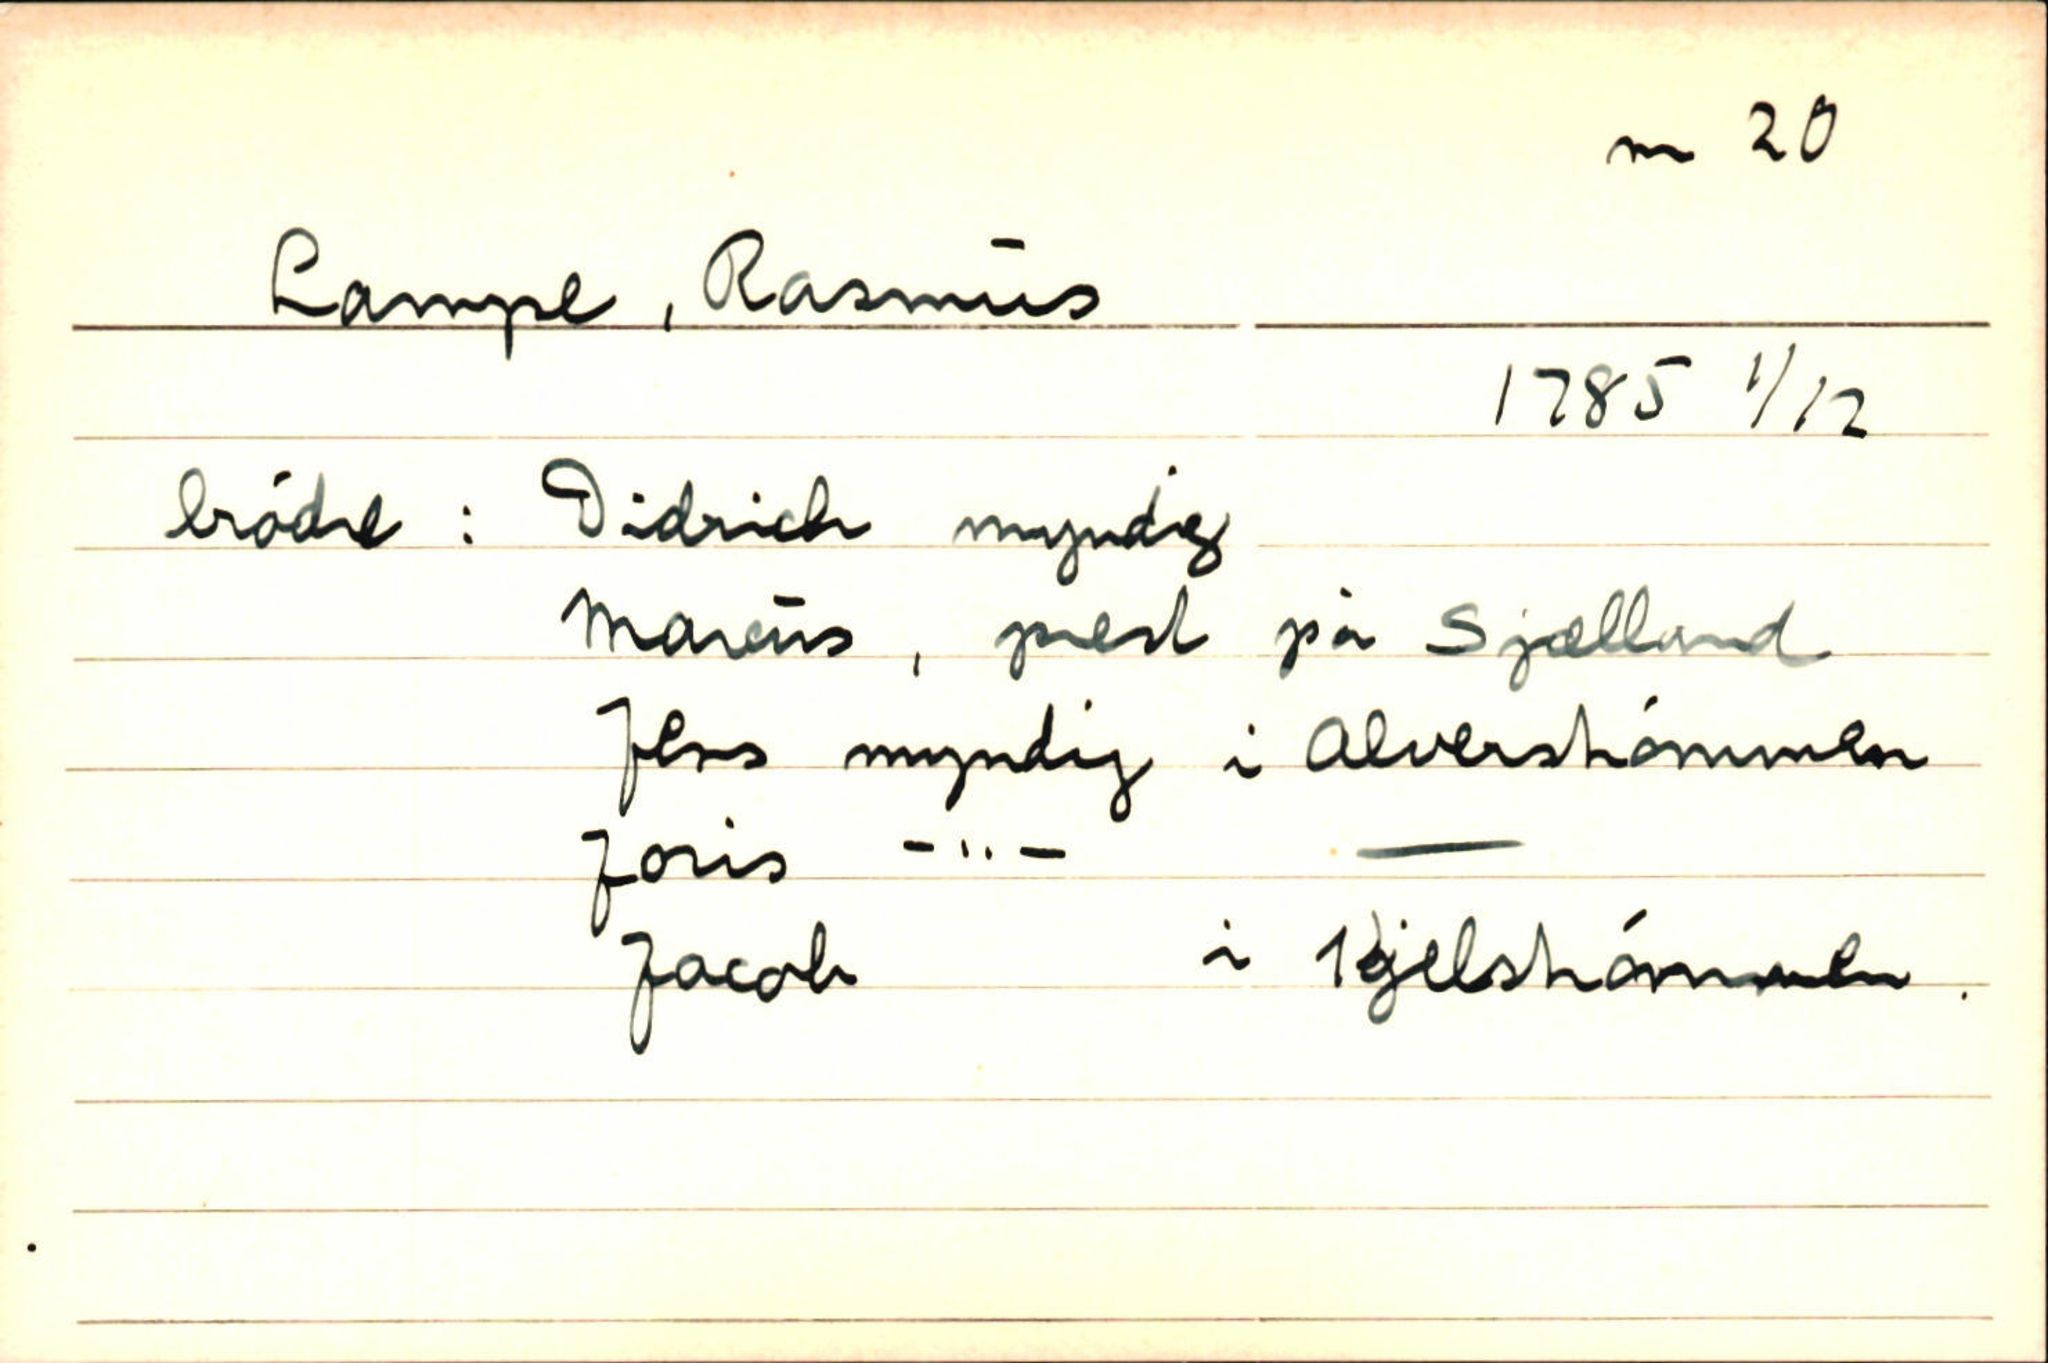 m 20
Lampe, Rasmus
1785 1/12
brødre : Didrich myndig
Marcus, prest på Sjælland
Jens myndig i Alverstrømmen
Joris -"- —
Jacob i Kjelstrømmen.